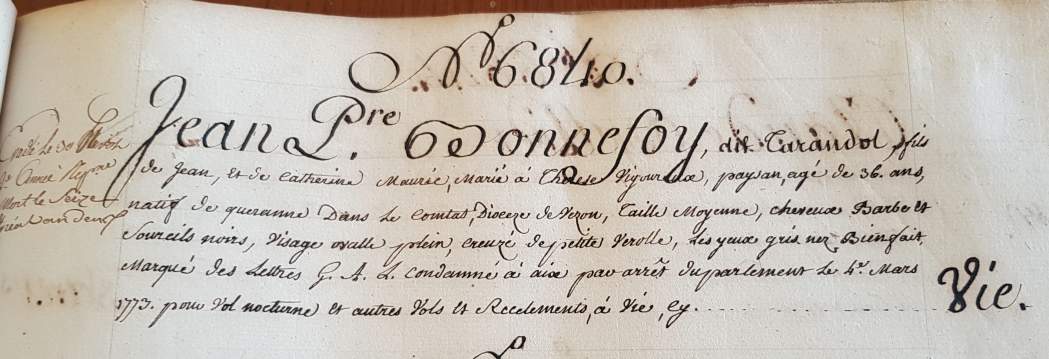 N° 6840.
Jean P.re Bonnefoy, dit Tarandol, fils
de Jean, et de Catherine Maurie, Marié à Therese Vigouroux, paysan, agé de 36. ans,
natif de queranne Dans le Comtat, Dioceze de Vezon, Taille Moyenne, cheveux Barbe et
Sourcils noirs, Visage ovalle plein, creuzé de petite Verolle, les yeux gris nez Bien fait,
Marqué des Lettres G. A. L. Condamné à aix par arrêt du parlement le 4.e Mars
1773. pour Vol nocturne et autres Vols et Recelements, à Vie, cy. Vie.
le 30
Mort le Seize